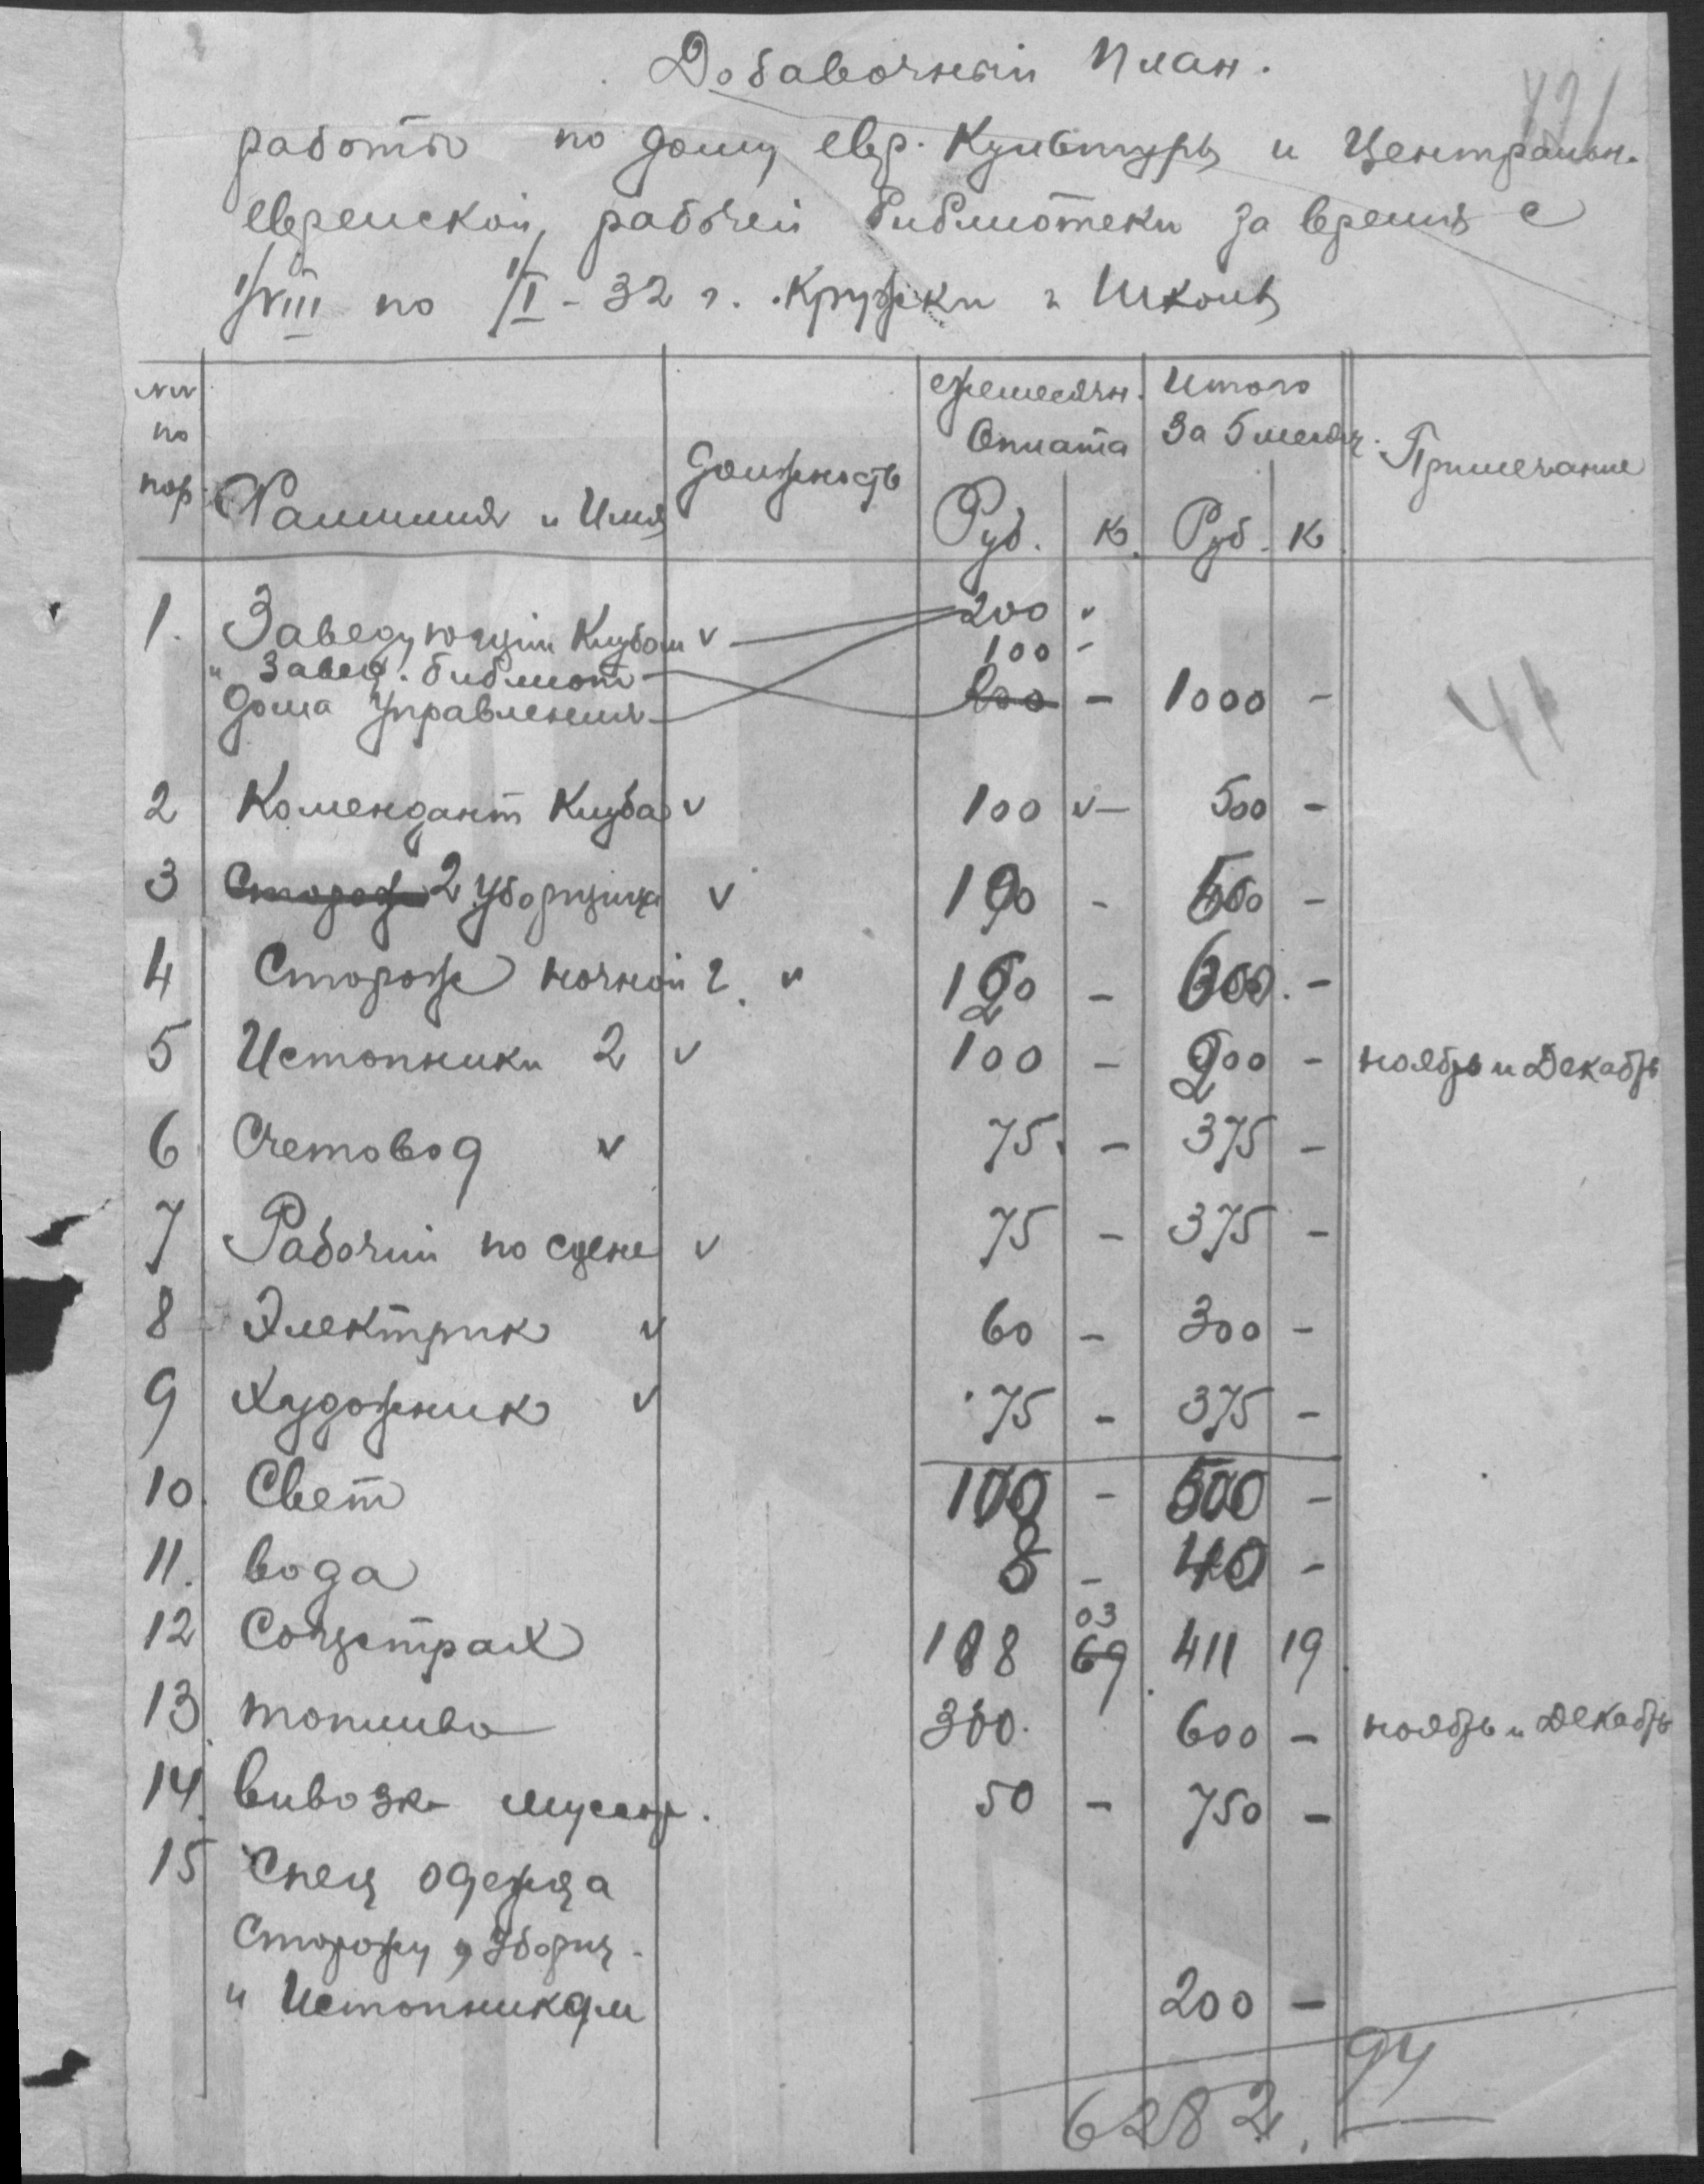 Добавочный План.
работы по дому евр. Культуры и Центральн.
еврейской рабочей библиотеки за время с
1/VIII по 1/I - 32 г. Кружки и Школы
№№ по пор.
Фамилия и Имя
Должность
ежемесячн. Оплата
Руб. К.
Итого За 5 месяц.
Руб. К
Примечание
1. Заведующий Клубом v 200 v
" Завед. библиот 100 -
Дома Управления 200 - 1000 -
41
2 Комендант Клуба v 100 v - 500 -
3 Сторож 2 Уборщица v 100 - 500 -
4 Сторож ночной 2. v 120 - 600. -
5 Истопники 2 v 100 - 200 - ноябрь и Декабрь
6 Счетовод v 75. - 375 -
7 Рабочий по сцене v 75 - 375 -
8 Электрик v 60 - 300 -
9 Художник v 75 - 375 -
10. Свет 100 - 500 -
11. вода 8 - 40 -
12 Соцстрах 188 03 69 411 19
13 топливо 300. 600 - ноябрь и Декабрь
14. вивозк мусор. 50 - 750 -
15 Спец одежда
Сторожу, Уборщ.
и Истопникам 200 -
6282. 94